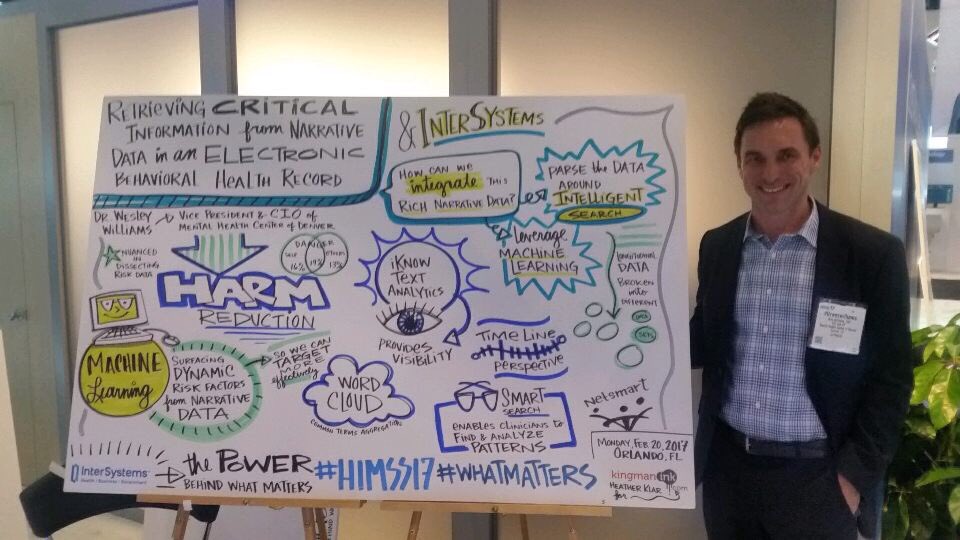 RETRIEVING CRITICAL
INFORMATION from NARRATIVE
DATA in an ELECTRONIC
BEHAVIORAL HEALTH RECORD
& INTERSYSTEMS
DR. WESLEY
WILLIAMS
VICE PRESIDENT & CIO of
MENTAL HEALTH CENTER of DENVER
HOW CAN WE
integrate THIS
RICH NARRATIVE DATA?
PARSE the DATA
AROUND
INTELLIGENT
SEARCH
Leverage
MACHINE
LEARNING
LONGITUDINAL
DATA
BROKEN into
DIFFERENT
DATA
SETS
NUANCED
IN DISSECTING
RISK DATA
DANGER
SELF
OTHERS
16%
14%
13%
HARM
REDUCTION
iKNOW
TEXT
ANALYTICS
PROVIDES
VISIBILITY
TIMELINE
PERSPECTIVE
MACHINE
Learning
SURFACING
DYNAMIC
RISK FACTORS
from NARRATIVE
DATA
SO WE CAN
TARGET
MORE
effectively
WORD
CLOUD
COMMON TERMS AGGREGATION
SMART
SEARCH
ENABLES CLINICIANS to
FIND & ANALYZE
PATTERNS
netsmart
MONDAY, FEB 20, 2017
ORLANDO, FL
InterSystems
Health | Business | Government
the POWER
BEHIND WHAT MATTERS
#HIMSS17 #WHATMATTERS
kingmanink.com
HEATHER KLAR
for